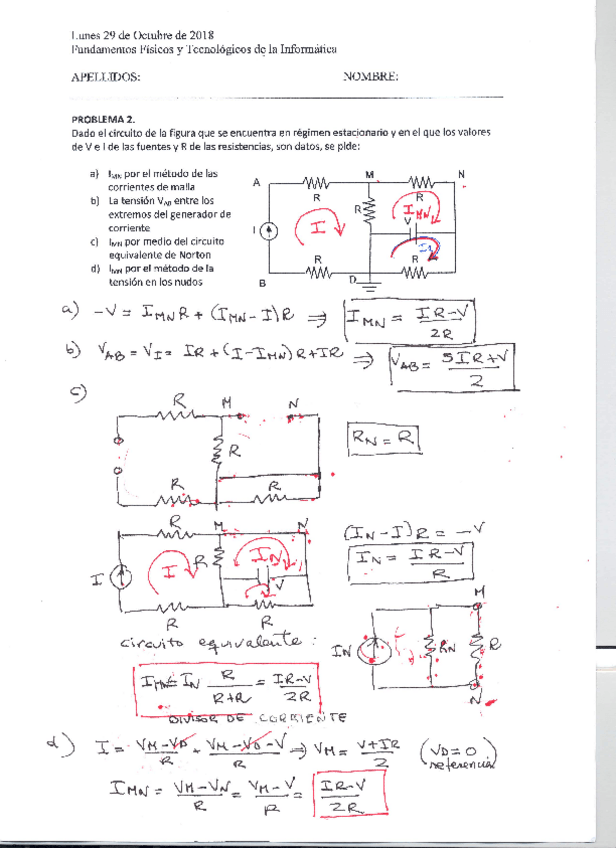 Lunes 29 de Octubre de 2018
Fundamentos Físicos y Tecnológicos de la Informática
APELLIDOS: NOMBRE:
PROBLEMA 2.
Dado el circuito de la figura que se encuentra en régimen estacionario y en el que los valores
de V e I de las fuentes y R de las resistencias, son datos, se pide:
a) I_MN por el método de las
corrientes de malla
b) La tensión V_AB entre los
extremos del generador de
corriente
c) I_MN por medio del circuito
equivalente de Norton
d) I_MN por el método de la
tensión en los nudos
A M N
R R
R I I_MN V
I I_N
R R
B D
a) -V = I_MN R + (I_MN - I)R ⇒ I_MN = (IR-V)/2R
b) V_AB = V_I = IR + (I-I_MN)R + IR ⇒ V_AB = (5IR+V)/2
c)
R M N
R
R_N = R
R R
R M N
(I_N - I)R = -V
I I R I_N
V
I_N = (IR-V)/R
R R
circuito equivalente:
M
I_N R_N R
N
I_MN = I_N R/(R+R) = (IR-V)/2R
DIVISOR DE CORRIENTE
d) I = (V_M-V_D)/R + (V_M-V_D-V)/R ⇒ V_M = (V+IR)/2 (V_D=0 referencia)
I_MN = (V_M-V_N)/R = (V_M-V)/R = (IR-V)/2R